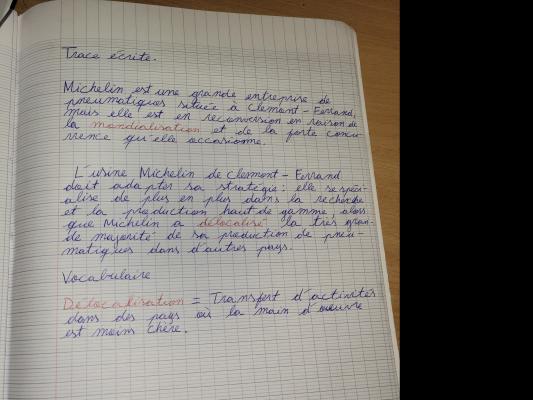 Trace écrite.
Michelin est une grande entreprise de
pneumatiques située à Clemont-Ferrand,
mais elle est en reconversion en raison de
la mondialisation et de la forte concu-
rrence qu'elle occasionne.
L'usine Michelin de Clemont-Ferrand
doit adapter sa stratégie : elle se spéci-
alise de plus en plus dans la recherche
et la production haut de gamme, alors
que Michelin a délocalisé la très gran-
de majorité de sa production de pneu-
matiques dans d'autres pays.
Vocabulaire
Délocalisation = Transfert d'activités
dans des pays où la main d'œuvre
est moins chère.